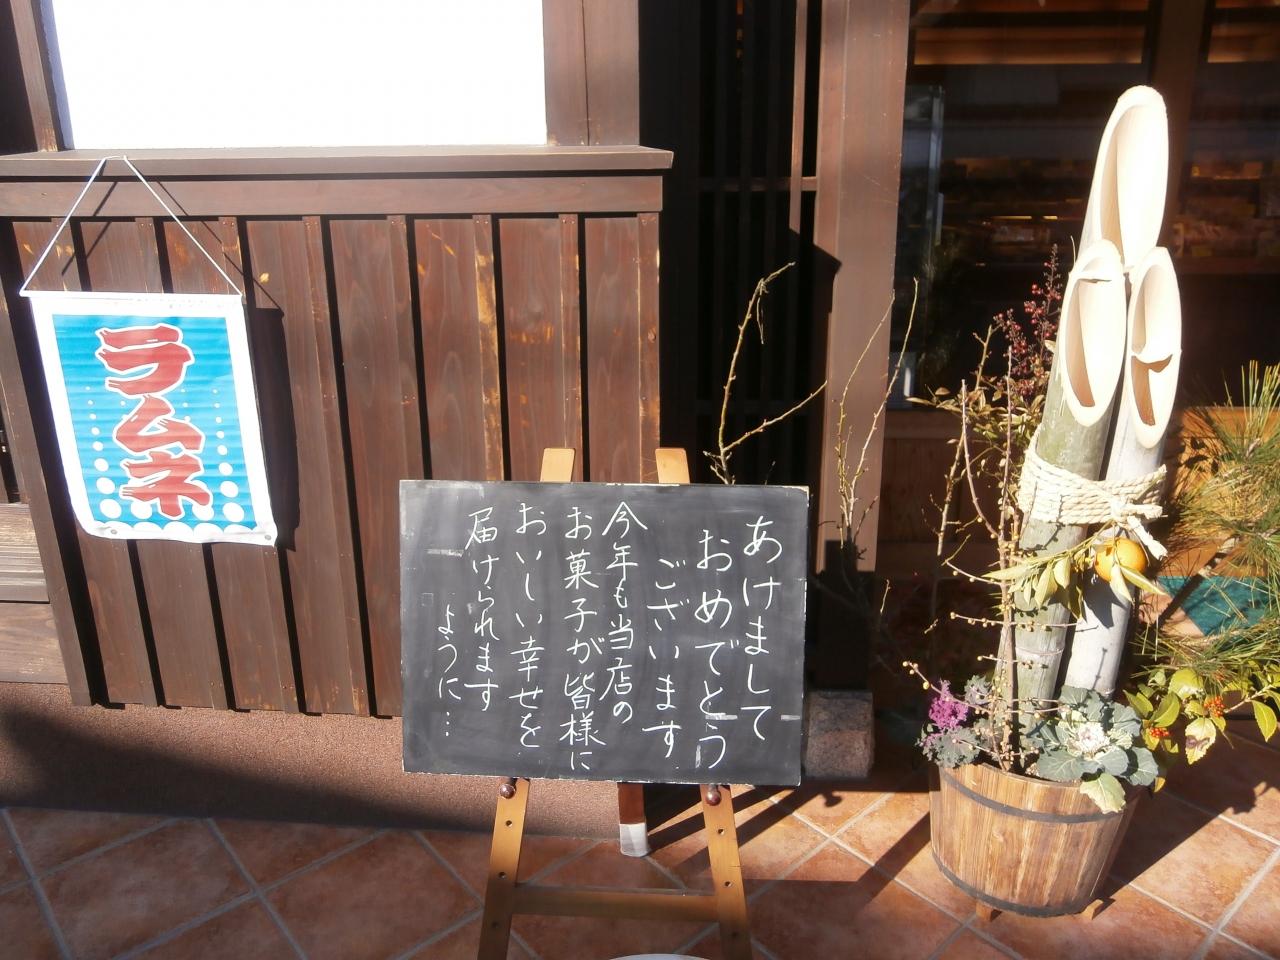 ラムネ
あけまして
おめでとう
ございます.
今年も当店の
お菓子が皆様に
おいしい幸せを
届けられます
ように…